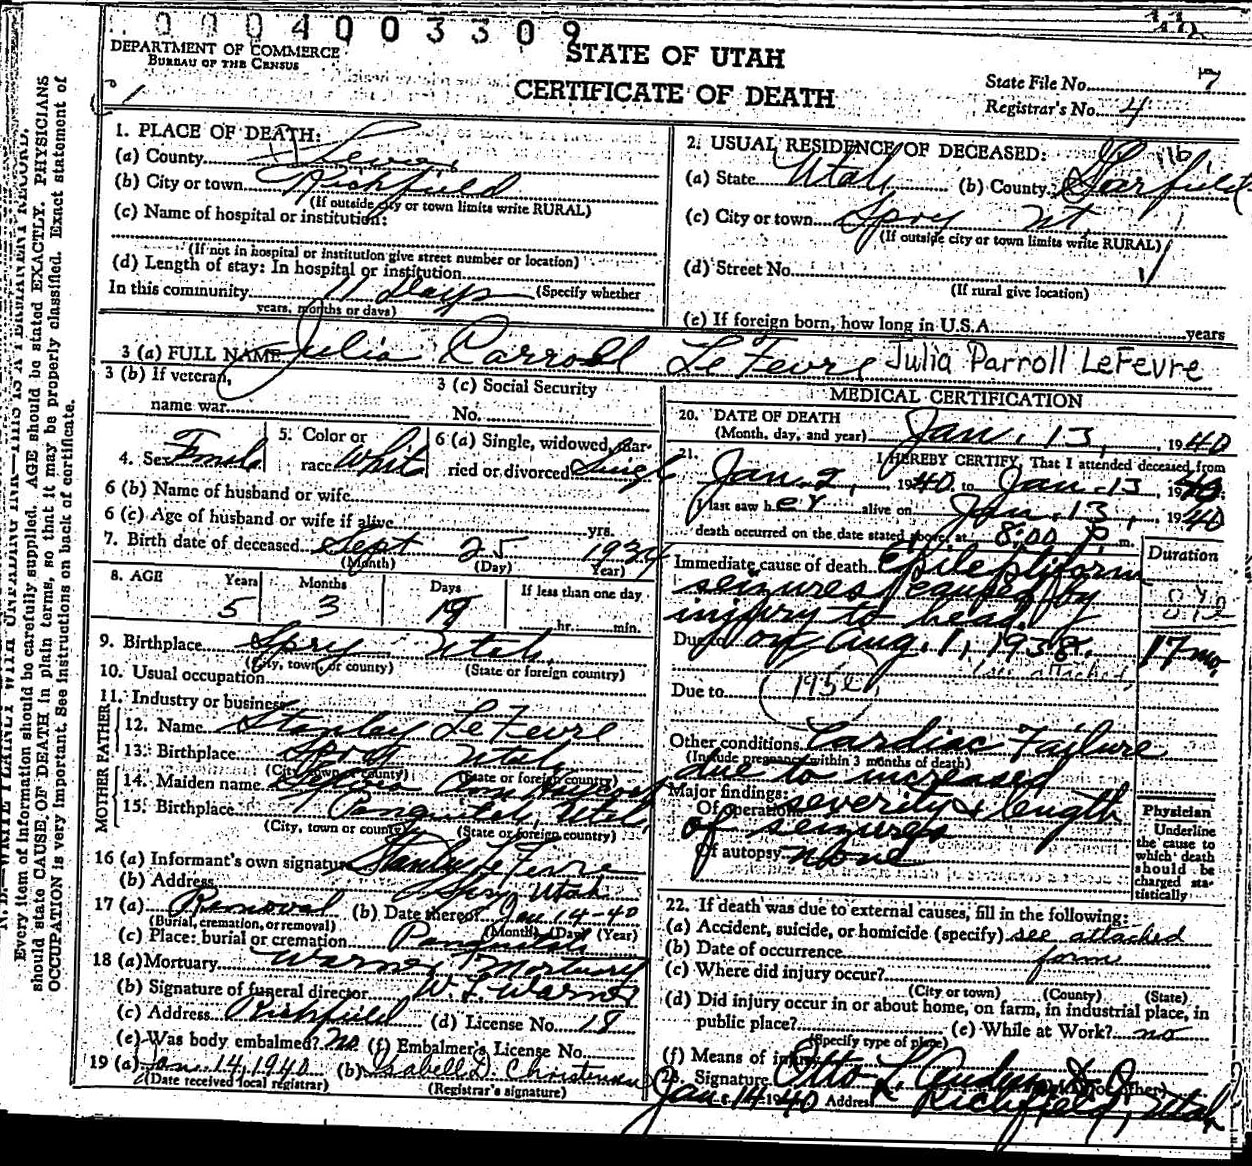 0004003309
DEPARTMENT OF COMMERCE
BUREAU OF THE CENSUS
STATE OF UTAH
CERTIFICATE OF DEATH
State File No. 7
Registrar's No. 4
1. PLACE OF DEATH:
(a) County Sevier
(b) City or town Richfield
(If outside city or town limits write RURAL)
(c) Name of hospital or institution:
(If not in hospital or institution give street number or location)
(d) Length of stay: In hospital or institution
In this community 11 days (Specify whether
years, months or days)
2. USUAL RESIDENCE OF DECEASED:
(a) State Utah (b) County Garfield
(c) City or town Spry Ut.
(If outside city or town limits write RURAL)
(d) Street No.
(If rural give location)
(e) If foreign born, how long in U.S.A. years
3 (a) FULL NAME Julia Carroll LeFevre Julia Parroll LeFevre
3 (b) If veteran,
name war
3 (c) Social Security
No.
4. Sex Female
5. Color or
race White
6 (a) Single, widowed, mar-
ried or divorced Single
6 (b) Name of husband or wife
6 (c) Age of husband or wife if alive yrs.
7. Birth date of deceased Sept 25 1934
(Month) (Day) (Year)
8. AGE Years Months Days If less than one day
5 3 19 hr. min.
9. Birthplace Spry Utah
(City, town, or county) (State or foreign country)
10. Usual occupation
11. Industry or business
FATHER
12. Name Stanley LeFevre
13. Birthplace Utah
(City, town or county) (State or foreign country)
MOTHER
14. Maiden name Ann
15. Birthplace Panguitch, Utah
(City, town or county) (State or foreign country)
16 (a) Informant's own signature Stanley LeFevre
(b) Address Spry Utah
17 (a) Removal (b) Date thereof Jan 14-40
(Burial, cremation, or removal) (Month) (Day) (Year)
(c) Place: burial or cremation Panguitch
18 (a) Mortuary Warner Mortuary
(b) Signature of funeral director W. L. Warner
(c) Address Richfield (d) License No. 18
(e) Was body embalmed? no (f) Embalmer's License No.
19 (a) Jan. 14, 1940 (b) Isabell D. Christensen
(Date received local registrar) (Registrar's signature)
MEDICAL CERTIFICATION
20. DATE OF DEATH
(Month, day, and year) Jan. 13, 1940
21. I HEREBY CERTIFY, That I attended deceased from
Jan. 2, 1940, to Jan. 13, 1940.
I last saw her alive on Jan. 13, 1940
death occurred on the date stated above, at 8:00 P. m.
Duration
Immediate cause of death Epileptiform
seizures caused by
injury to head
Due to on Aug. 1, 1938. 17 mo.
(see attached)
Due to
Other conditions Cardiac Failure
(Include pregnancy within 3 months of death)
due to increased
Major findings:
Of operations severity & length
of seizures
Of autopsy none
Physician
Underline
the cause to
which death
should be
charged sta-
tistically
22. If death was due to external causes, fill in the following:
(a) Accident, suicide, or homicide (specify) see attached
(b) Date of occurrence form
(c) Where did injury occur?
(City or town) (County) (State)
(d) Did injury occur in or about home, on farm, in industrial place, in
public place? (e) While at Work? no
(Specify type of place)
(f) Means of injury
Signature Otto L. Anderson
Jan. 14-1940 Address Richfield, Utah
Every item of information should be carefully supplied. AGE should be stated EXACTLY. PHYSICIANS
should state CAUSE OF DEATH in plain terms, so that it may be properly classified. Exact statement of
OCCUPATION is very important. See instructions on back of certificate.